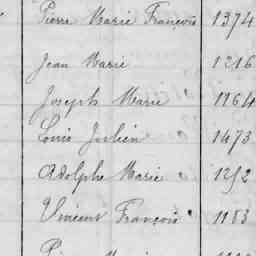 Pierre Marie François 1374
Jean Marie 1216
Joseph Marie 1164
Louis Julien 1473
Adolphe Marie 1292
Vincent François 1183